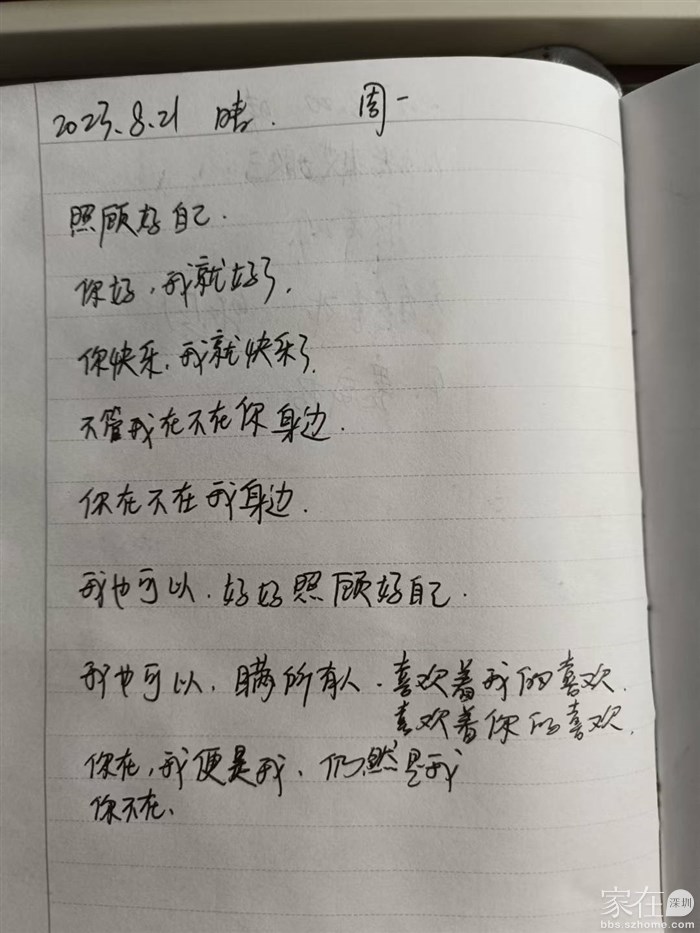 2023.8.21 晴. 周一
照顾好自己.
你好,我就好了.
你快乐,我就快乐了
不管我在不在你身边.
你在不在我身边.
我也可以.好好照顾好自己.
我也可以,瞒所有人.喜欢着我的喜欢.
喜欢着你的喜欢.
你在,我便是我、仍然是我
你不在、
家在深圳
bbs.szhome.com